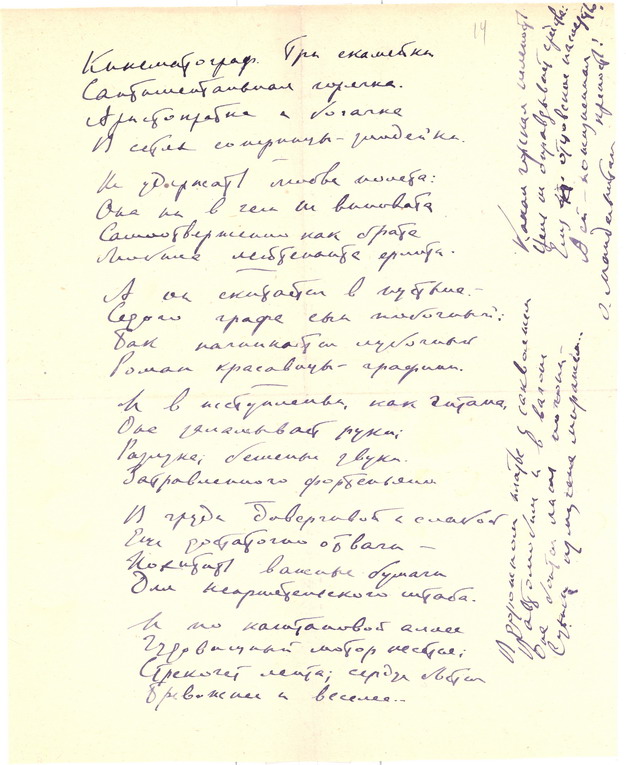 14
Кинематограф. Три скамейки
Сантиментальная горячка.
Аристократка и богачка
В сетях соперницы-злодейки.
Не удержать любви полета:
Она ни в чем не виновата
Самоотверженно как брата
Любила лейтенанта флота.
А он скитается в пустыне –
Седого графа сын побочный:
Так начинается лубочный
Роман красавицы-графини.
И в исступленьи, как гитана,
Она заламывает руки;
Разлука; бешеные звуки
Затравленного фортепьяно
В груди доверчивой и слабой
Еще достаточно отваги –
Похитить важные бумаги
Для неприятельского штаба.
И по каштановой аллее
Чудовищный мотор несется;
Стрекочет лента; сердце бьется
Тревожнее и веселее..
В дорожном платье с саквояжем
В автомобиле и в вагоне
Она боится лишь погони –
Сухим измучена миражем..
Какая горькая нелепость
Цель не оправдывает средства:
Ему отцовское наследство
А ей – пожизненная крепость!
О. Мандельштам